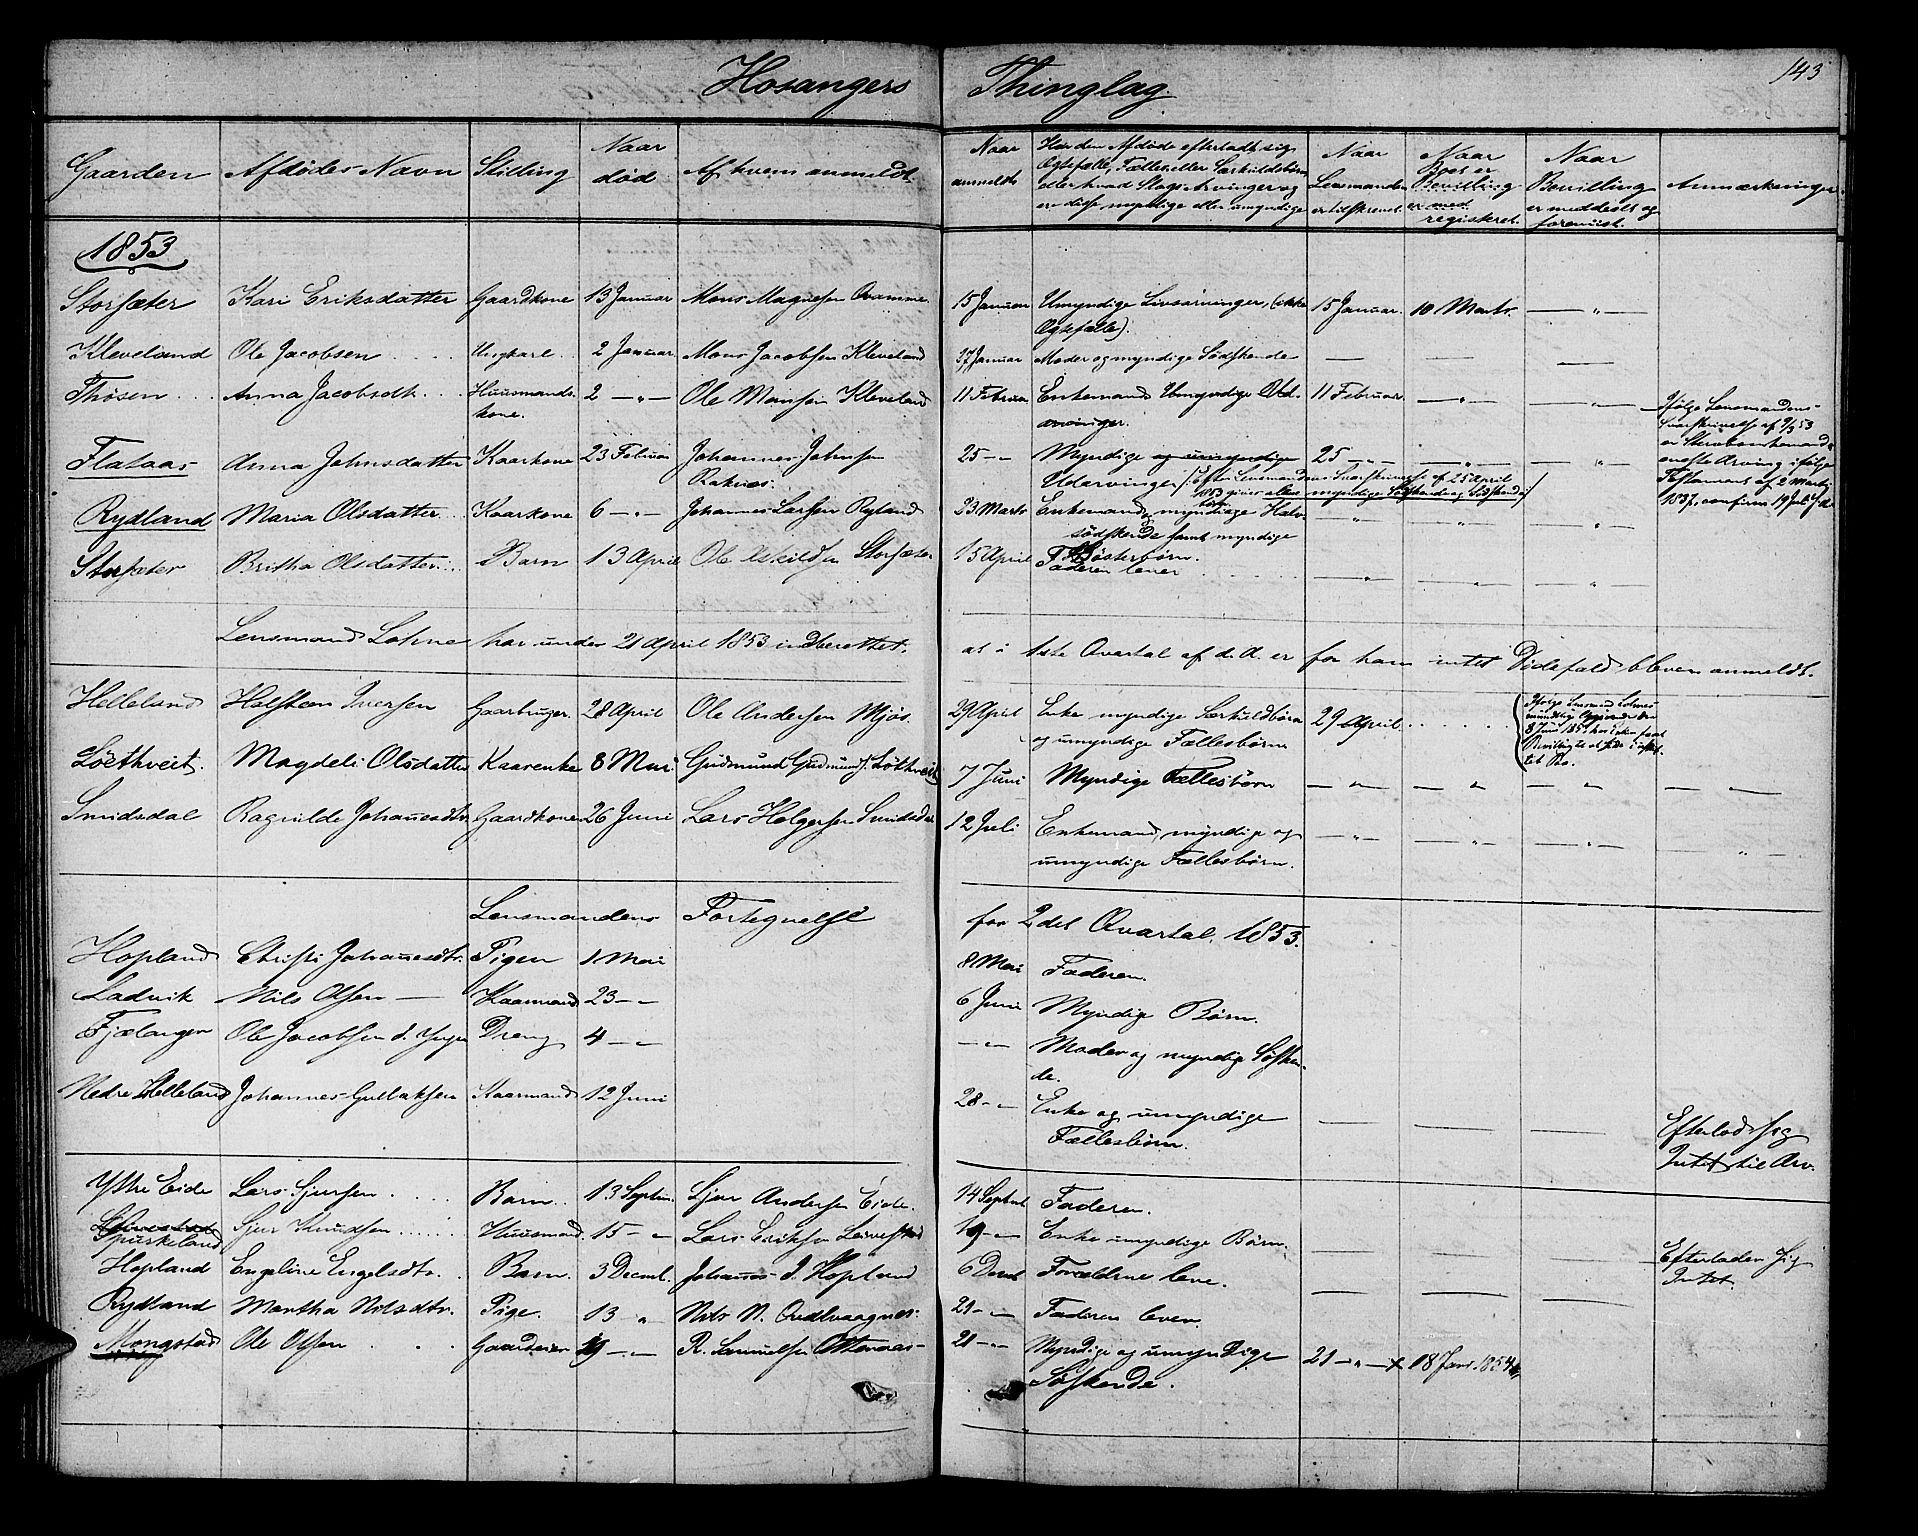 Hosangers Thinglag.
143
Gaarden Afdødes Navn Stilling Naar død Af hvem anmeldt Naar anmeldt Har den Afdøde efterladt sig Ægtefælle, Fælles eller Særkuldsbørn, eller hvad Slags Arvinger og ere disse myndige eller umyndige Naar Lensmanden er tilskrevet. Naar Boet er registreret. Naar Bevilling er meddeelt og forevist. Anmærkninger.
1853
Storsæter Kari Eriksdatter Gaardkone 13 Januar Mons Magnesen 15 Januar Umyndige Livsarvinger, (ikke Ægtefælle). 15 Januar. 10 Marts. — " —
Kleveland Ole Jacobsen Ungkarl. 2 Januar Mons Jacobsen Kleveland 27 Januar Moder og myndige Södskende — — —
Thösen Anna Jacobsdtr. Huusmandskone. 2 — " — Ole Monsen Kleveland 11 Februar Enkemand Umyndige Udarvinger. 11 Februar. — " — — " — Ifølge Lensmandens Svarskrivelse af 9/3 53 er Sterbboenkemand eneste Arving ifølge Testament af 2 Marts
Flataas Anna Johnsdatter Kaarkone 23 Februar Johannes Johnsen Raknes. 25 — " Myndige og umyndige Udarvinger /: efter Lensmandens Svarskrivelse af 25 April 1853 25 — " — — " — — " —
Rydland Maria Olsdatter Kaarkone 6 — " — Johannes Larsen Ryland 23 Marts Enkemand, myndige Halvsödskende samt myndige Søsterbørn. — " — — " — "
Storsæter Britha Olsdatter Barn 13 April Ole Eskildsen Storsæter 15 April Faderen lever — " — — " — — " —
Lensmand Lohne har under 21 April 1853 indberettet, at i 1ste Qvartal af d. A. er for ham intet Dödsfald bleven anmeldt.
Helleland Halsteen Iversen Gaardbruger. 28 April Ole Andersen Mjös. 29 April Enke myndige Særkuldbörn og umyndige Fællesbörn 29 April. Ifölge Lensmand Lohnes mundtlige Opgivende den 8 Juni 1853
Löethveit. Magdeli Olsdatter Kaarenke 8 Mai Gudmund Gudmunds. Löthveit 7 Juni Myndige Fællesbörn — " — — " — " — — " —
Smidsdal Ragnilde Johannesdtr. Gaardkone 26 Juni Lars Helgesen Smidsdal 12 Juli Enkemand, myndige og umyndige Fællesbörn. — " — — " — — " — "
Lensmandens Fortegnelse for 2det Qvartal. 1853.
Hopland Christi Johannesdtr. Pigen 1 Mai 8 Mai Faderen.
Ladvik Nils Olsen — Kaarmand 23 — " 6 Juni Myndige Börn.
Fjælanger Ole Jacobsen d. Yngre Dreng 4 — " — " — Moder og myndige Søskende.
Nedre Helleland Johannes Gullaksen Kaarmand 12 Juni 28 — " Enke og umyndige Fællesbörn. — — — Efterlod sig Intet til Arv.
Ytre Eide Lars Sjursen Barn. 13 Septbr. Sjur Andersen Eide. 14 Septbr Faderen.
Spurkeland Sjur Knudsen Huusmand. 15 — " Lars Eriksen Leivestad 19 — " Enke umyndige Börn. — — — Efterlader sig Intet.
Hopland Engeline Engelsdtr. Barn. 3 Decmb. Johannes J. Hopland 6 Decmb Foreldrene leve. — — —
Rydland Martha Nilsdtr. Pige. 13 " Nils N. 21 — " Faderen lever. — — —
Mongstad Ole Olsen Gaardeier 19 — " — R. Samuelsen 21 — " Myndige og umyndige Söskende. 21 — " — × 18 Janr. 1854